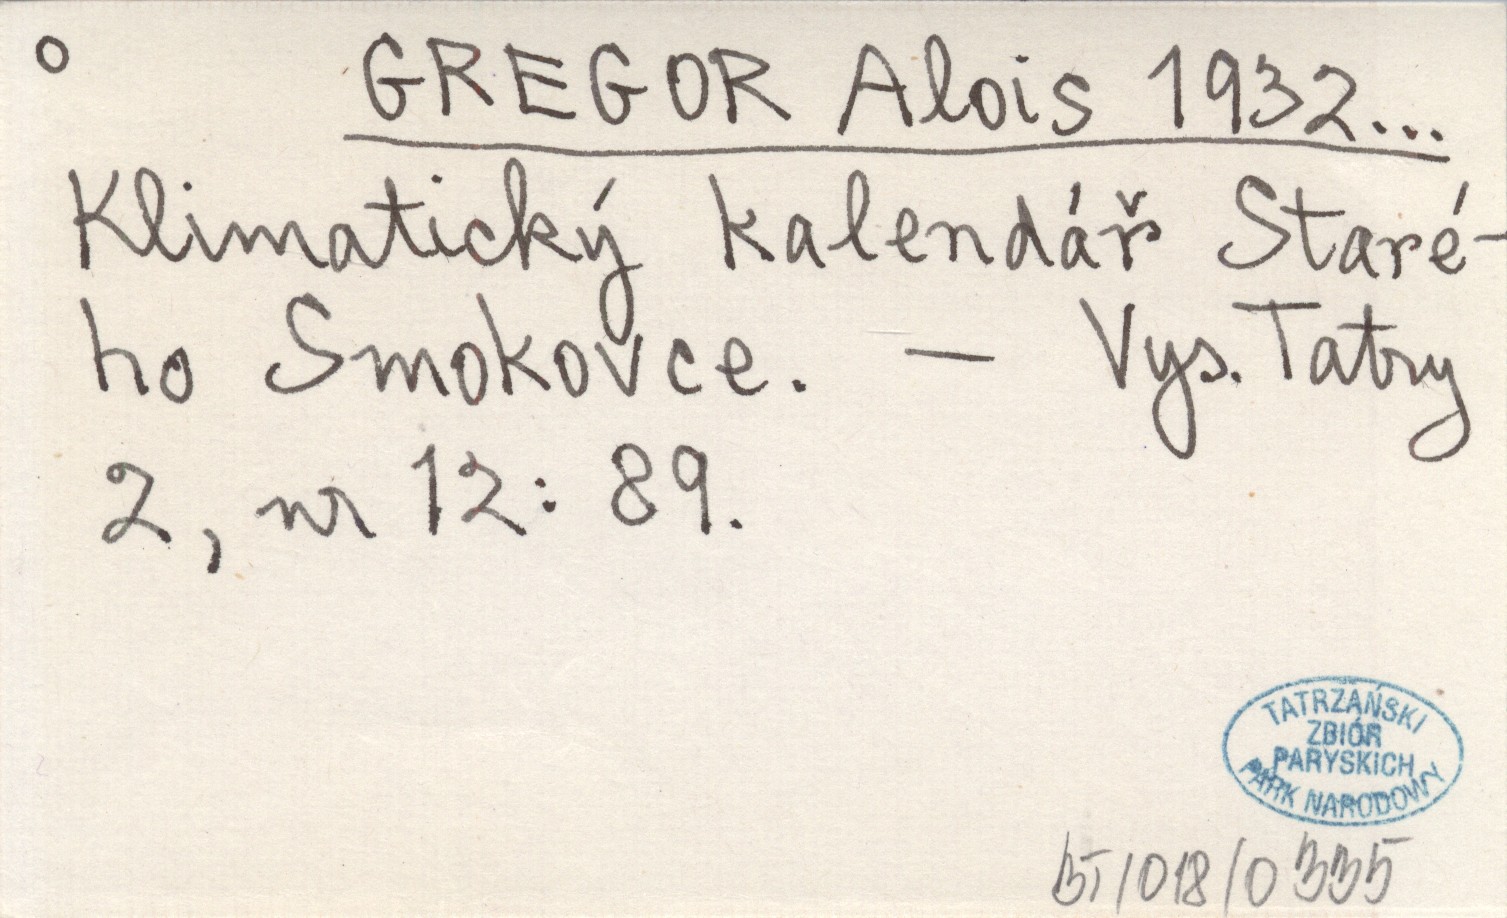 o GREGOR Alois 1932...
Klimatický kalendář Staré-
ho Smokovce. — Vys. Tatry
2, nr 12: 89.
TATRZAŃSKI
ZBIÓR
PARYSKICH
PARK NARODOWY
BT/018/0335